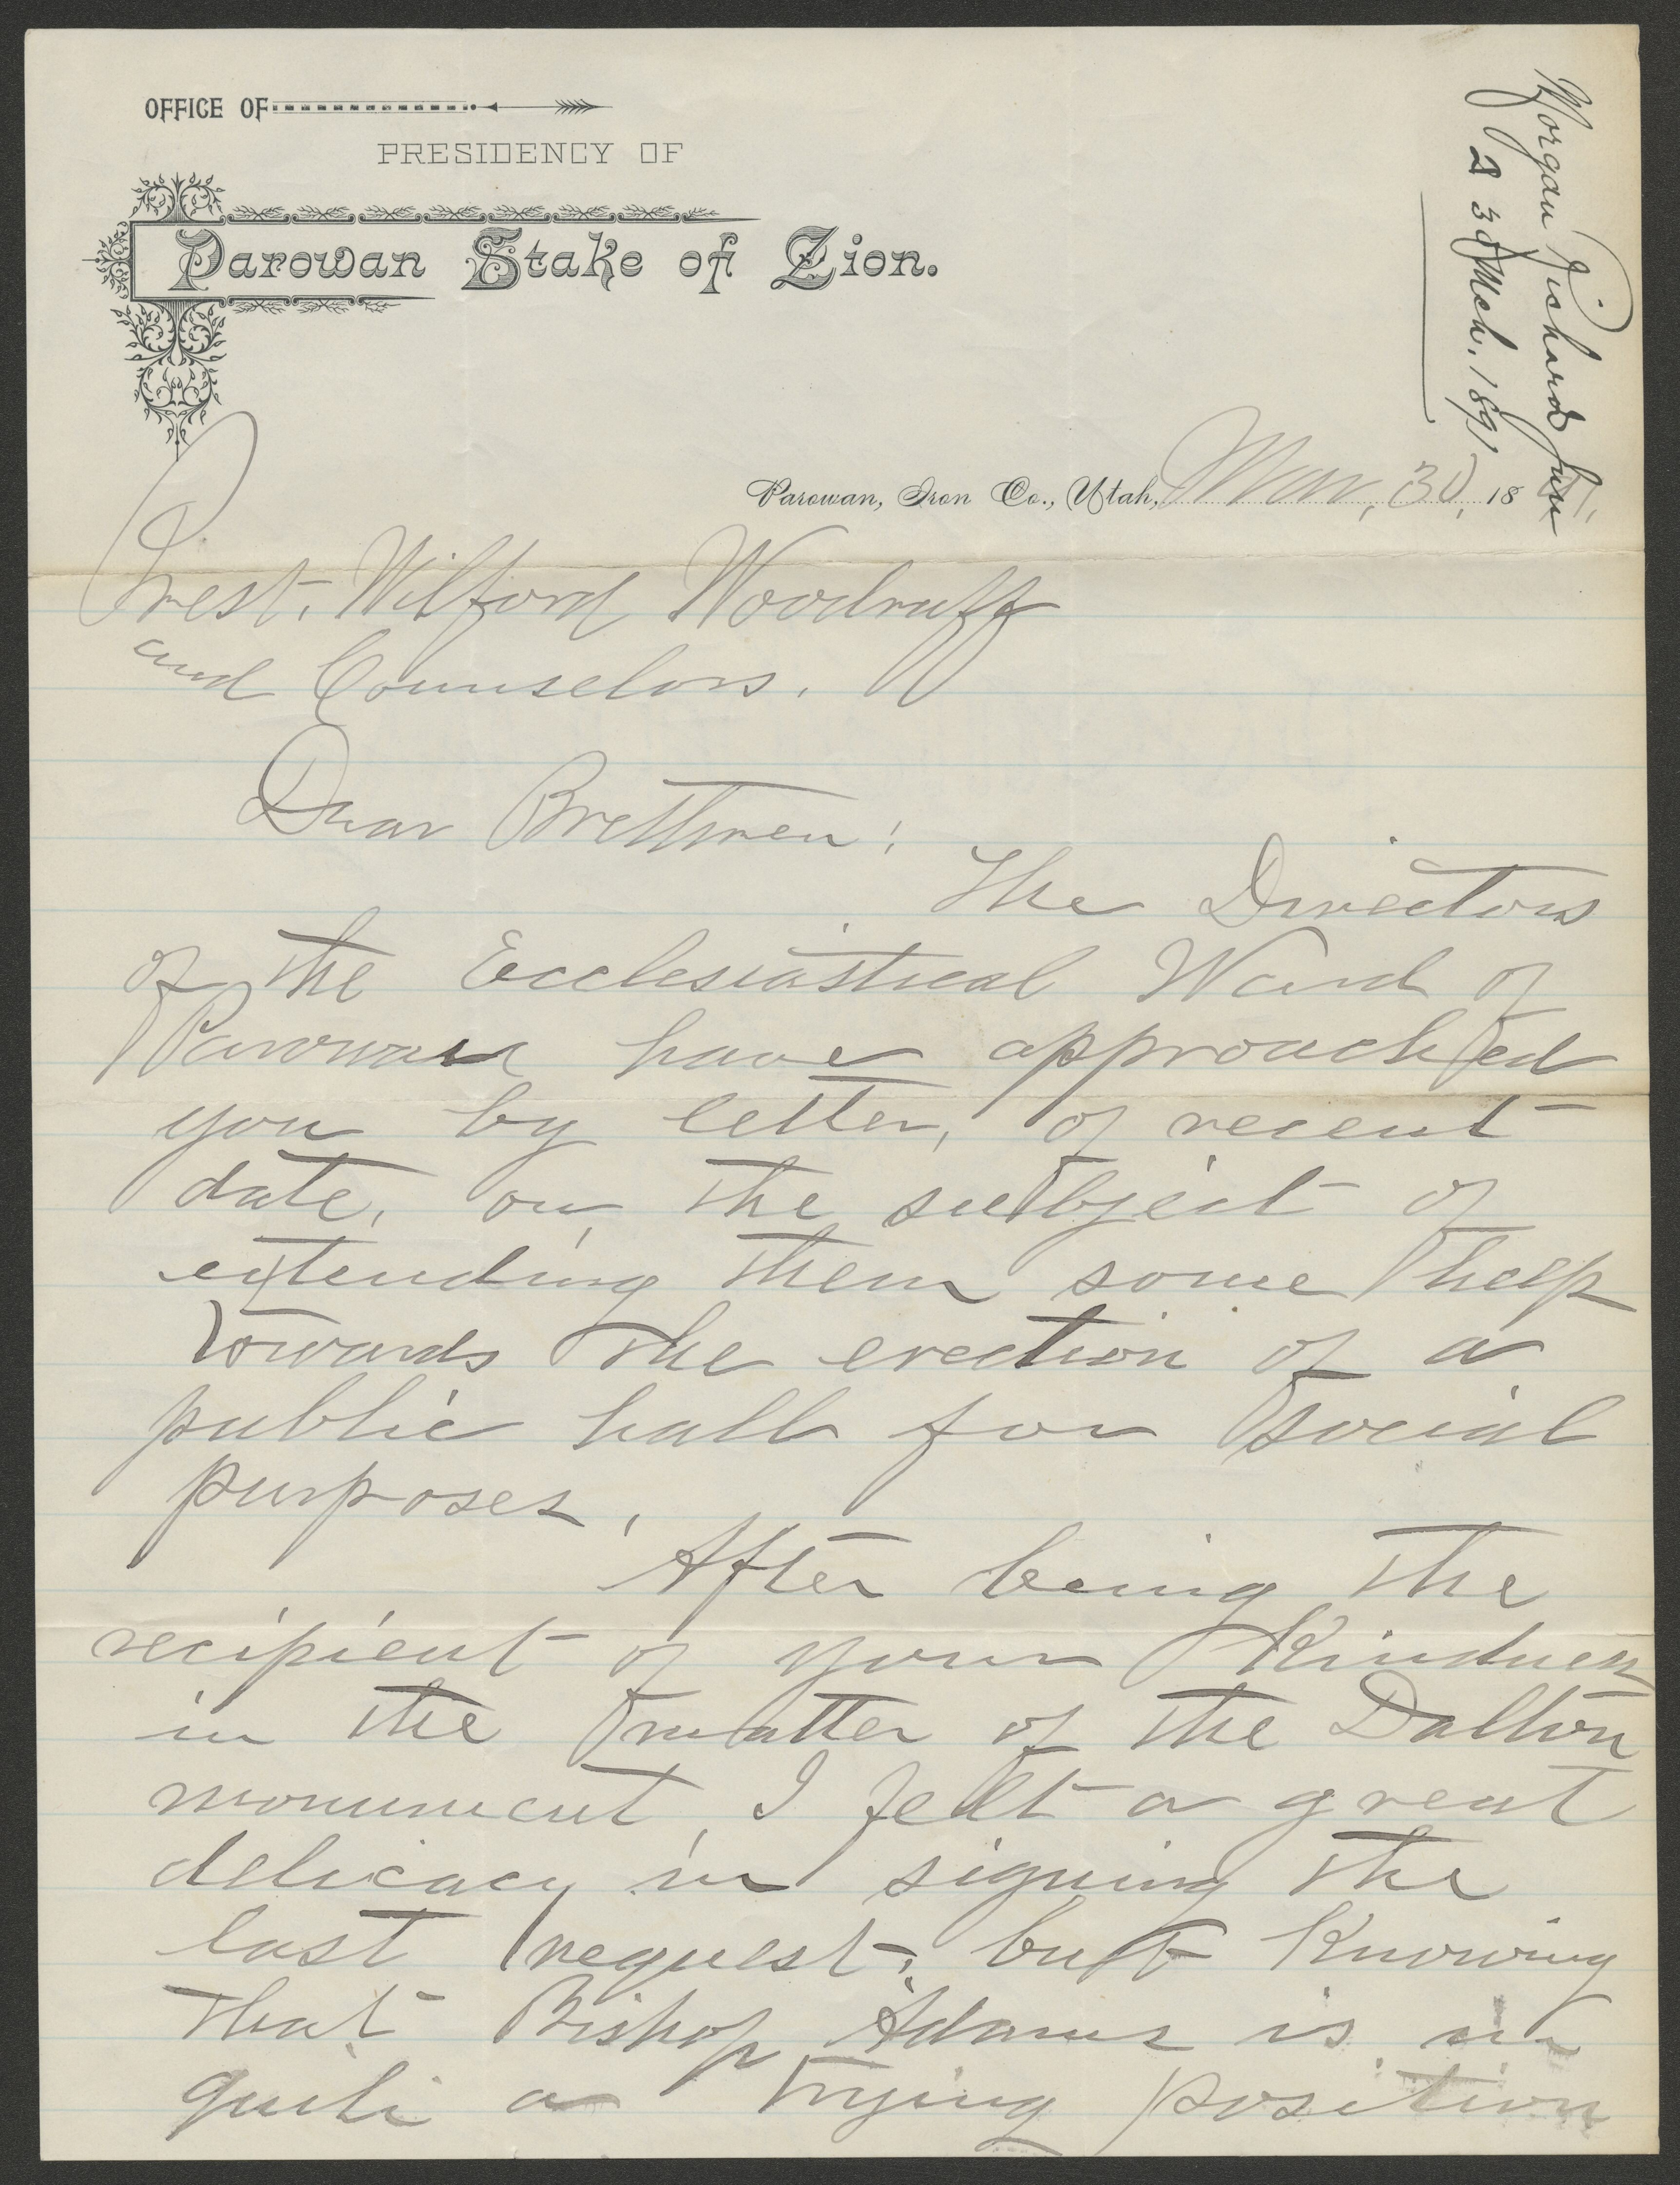 OFFICE OF
PRESIDENCY OF
Parowan Stake of Zion.
Morgan Richards Jun
30 Mch. 1891
Parowan, Iron Co., Utah, Mar, 30, 1891,
Prest. Wilford Woodruff
and Counselors.
Dear Brethren:
The Directors
of the Ecclesiastical Ward of
Parowan have approached
you by letter, of recent
date, on the subject of
extending them some help
towards the erection of a
public hall for social
purposes.
After being the
recipient of your kindness
in the matter of the Dalton
monument, I felt a great
delicacy in signing the
last request; but knowing
that Bishop Adams is in
quite a trying position